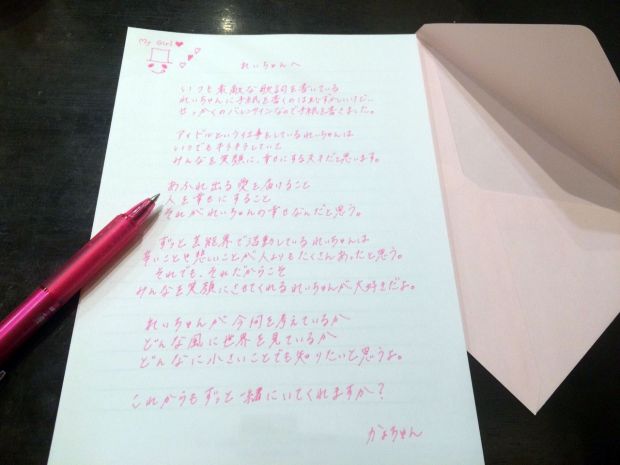 My Girl
れいちゃんへ
いつも素敵な歌詞を書いている
れいちゃんに手紙を書くのははずかしいけど…
せっかくのバレンタインなので手紙を書きました。
アイドルという仕事をしているれいちゃんは
いつでもキラキラしていて
みんなを笑顔に、幸せにする天才だと思います。
あふれ出る愛を届けること
人を幸せにすること
それがれいちゃんの幸せなんだと思う。
ずっと芸能界で活動しているれいちゃんは
辛いことや悲しいことが人よりもたくさんあったと思う。
それでも、それだからこそ
みんなを笑顔にさせてくれるれいちゃんが大好きだよ。
れいちゃんが今何を考えているか
どんな風に世界を見ているか
どんなに小さいことでも知りたいと思うよ。
これからもずっと一緒にいてくれますか？